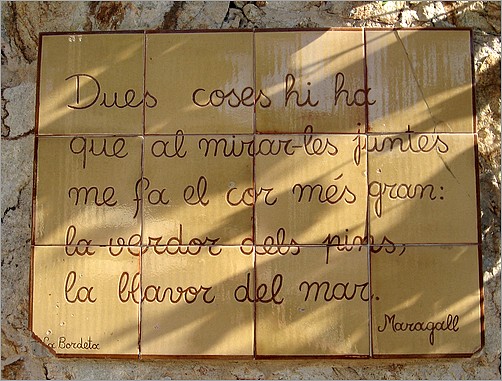 Dues coses hi ha
que al mirar-les juntes
me fa el cor més gran:
la verdor dels pins,
la blavor del mar.
Maragall
La Bordeta